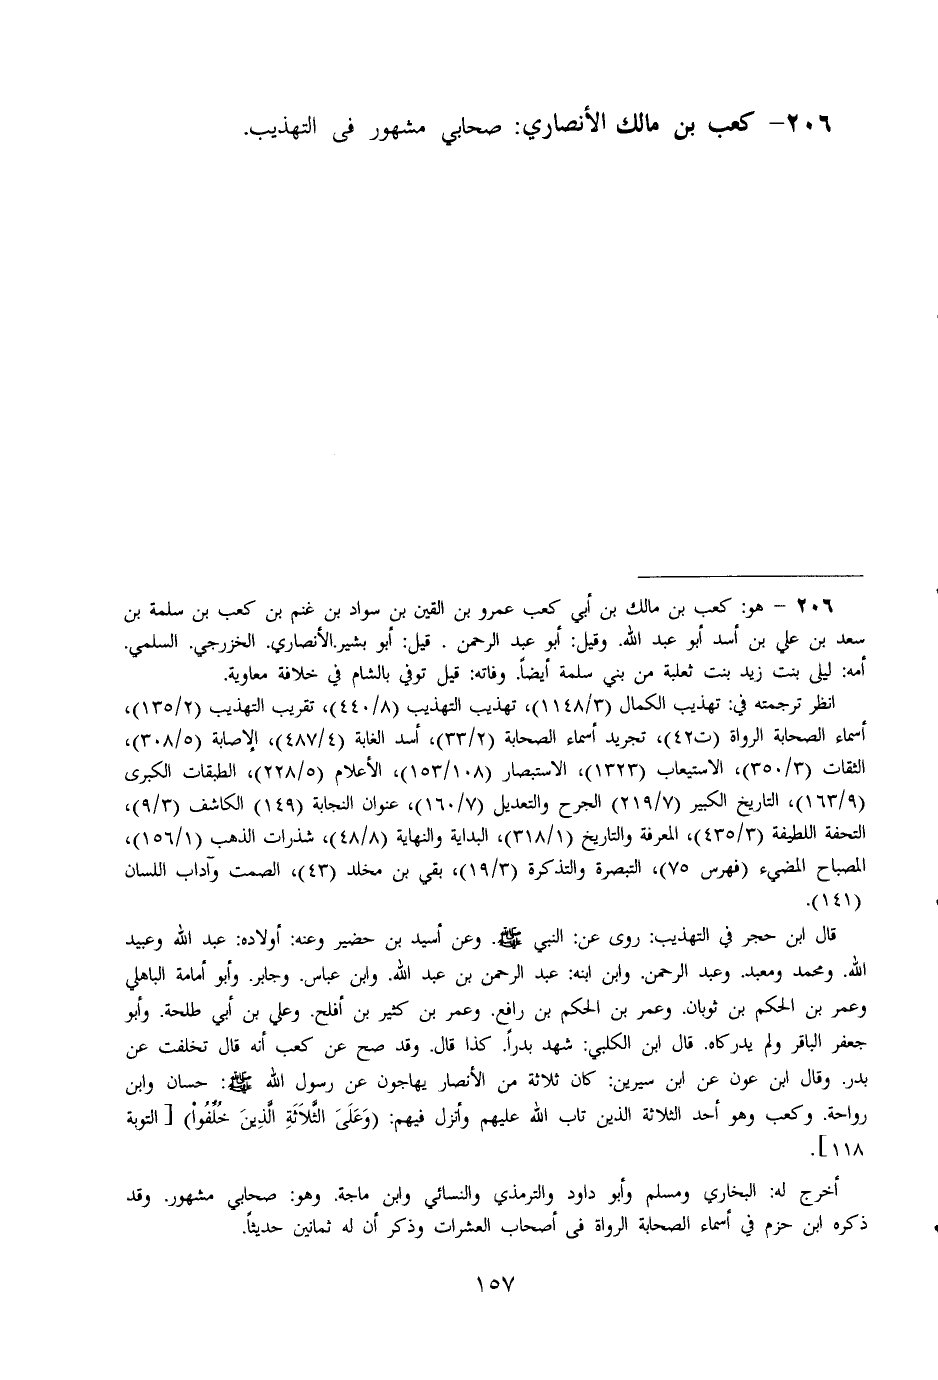 ٢٠٦- كعب بن مالك الأنصاري: صحابي مشهور فى التهذيب.
٢٠٦ - هو: كعب بن مالك بن أبي كعب عمرو بن القين بن سواد بن غنم بن كعب بن سلمة بن
سعد بن علي بن أسد أبو عبد الله. وقيل: أبو عبد الرحمن . قيل: أبو بشير.الأنصاري. الخزرجي. السلمي.
أمه: ليلى بنت زيد بنت ثعلبة من بني سلمة أيضاً. وفاته: قيل توفي بالشام في خلافة معاوية.
انظر ترجمته في: تهذيب الكمال (١١٤٨/٣)، تهذيب التهذيب (٤٤٠/٨)، تقريب التهذيب (١٣٥/٢)،
أسماء الصحابة الرواة (ت٤٢)، تجريد أسماء الصحابة (٣٣/٢)، أسد الغابة (٤٨٧/٤)، الإصابة (٣٠٨/٥)،
الثقات (٣٥٠/٣)، الاستيعاب (١٣٢٣)، الاستبصار (١٥٣/١٠٨)، الأعلام (٢٢٨/٥)، الطبقات الكبرى
(١٦٣/٩)، التاريخ الكبير (٢١٩/٧) الجرح والتعديل (١٦٠/٧)، عنوان النجابة (١٤٩) الكاشف (٩/٣)،
التحفة اللطيفة (٤٣٥/٣)، المعرفة والتاريخ (٣١٨/١)، البداية والنهاية (٤٨/٨)، شذرات الذهب (١٥٦/١)،
المصباح المضيء (فهرس ٧٥)، التبصرة والتذكرة (١٩/٣)، بقي بن مخلد (٤٣)، الصمت وآداب اللسان
(١٤١).
قال ابن حجر في التهذيب: روى عن: النبي ﷺ. وعن أسيد بن حضير وعنه: أولاده: عبد الله وعبيد
الله. ومحمد ومعبد. وعبد الرحمن. وابن ابنه: عبد الرحمن بن عبد الله. وابن عباس. وجابر. وأبو أمامة الباهلي
وعمر بن الحكم بن ثوبان. وعمر بن الحكم بن رافع. وعمر بن كثير بن أفلح. وعلي بن أبي طلحة. وأبو
جعفر الباقر ولم يدركاه. قال ابن الكلبي: شهد بدراً. كذا قال. وقد صح عن كعب أنه قال تخلفت عن
بدر. وقال ابن عون عن ابن سيرين: كان ثلاثة من الأنصار يهاجون عن رسول الله ﷺ: حسان وابن
رواحة. وكعب وهو أحد الثلاثة الذين تاب الله عليهم وأنزل فيهم: (وَعَلَى الثَّلاَثَةِ الَّذِينَ خُلِّفُواْ) [ التوبة
١١٨].
أخرج له: البخاري ومسلم وأبو داود والترمذي والنسائي وابن ماجة. وهو: صحابي مشهور. وقد
ذكره ابن حزم في أسماء الصحابة الرواة فى أصحاب العشرات وذكر أن له ثمانين حديثاً.
١٥٧